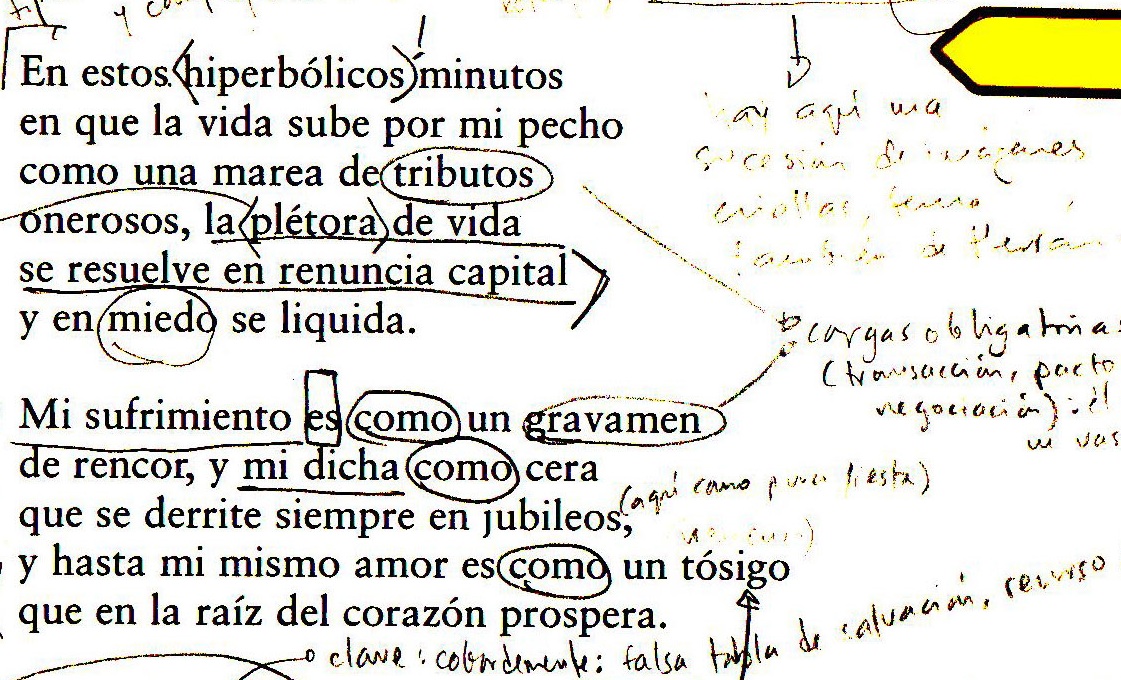 y
En estos hiperbólicos minutos
en que la vida sube por mi pecho
como una marea de tributos
onerosos, la plétora de vida
se resuelve en renuncia capital
y en miedo se liquida.
Mi sufrimiento es como un gravamen
de rencor, y mi dicha como cera
que se derrite siempre en jubileos,
y hasta mi mismo amor es como un tósigo
que en la raíz del corazón prospera.
hay aquí una
sucesión de imágenes
criollas,
también de
cargas obligatorias
(transacción, pacto
negociación): él
un vas
(aquí como pura fiesta)
clave: cobardemente: falsa tabla de salvación, recurso